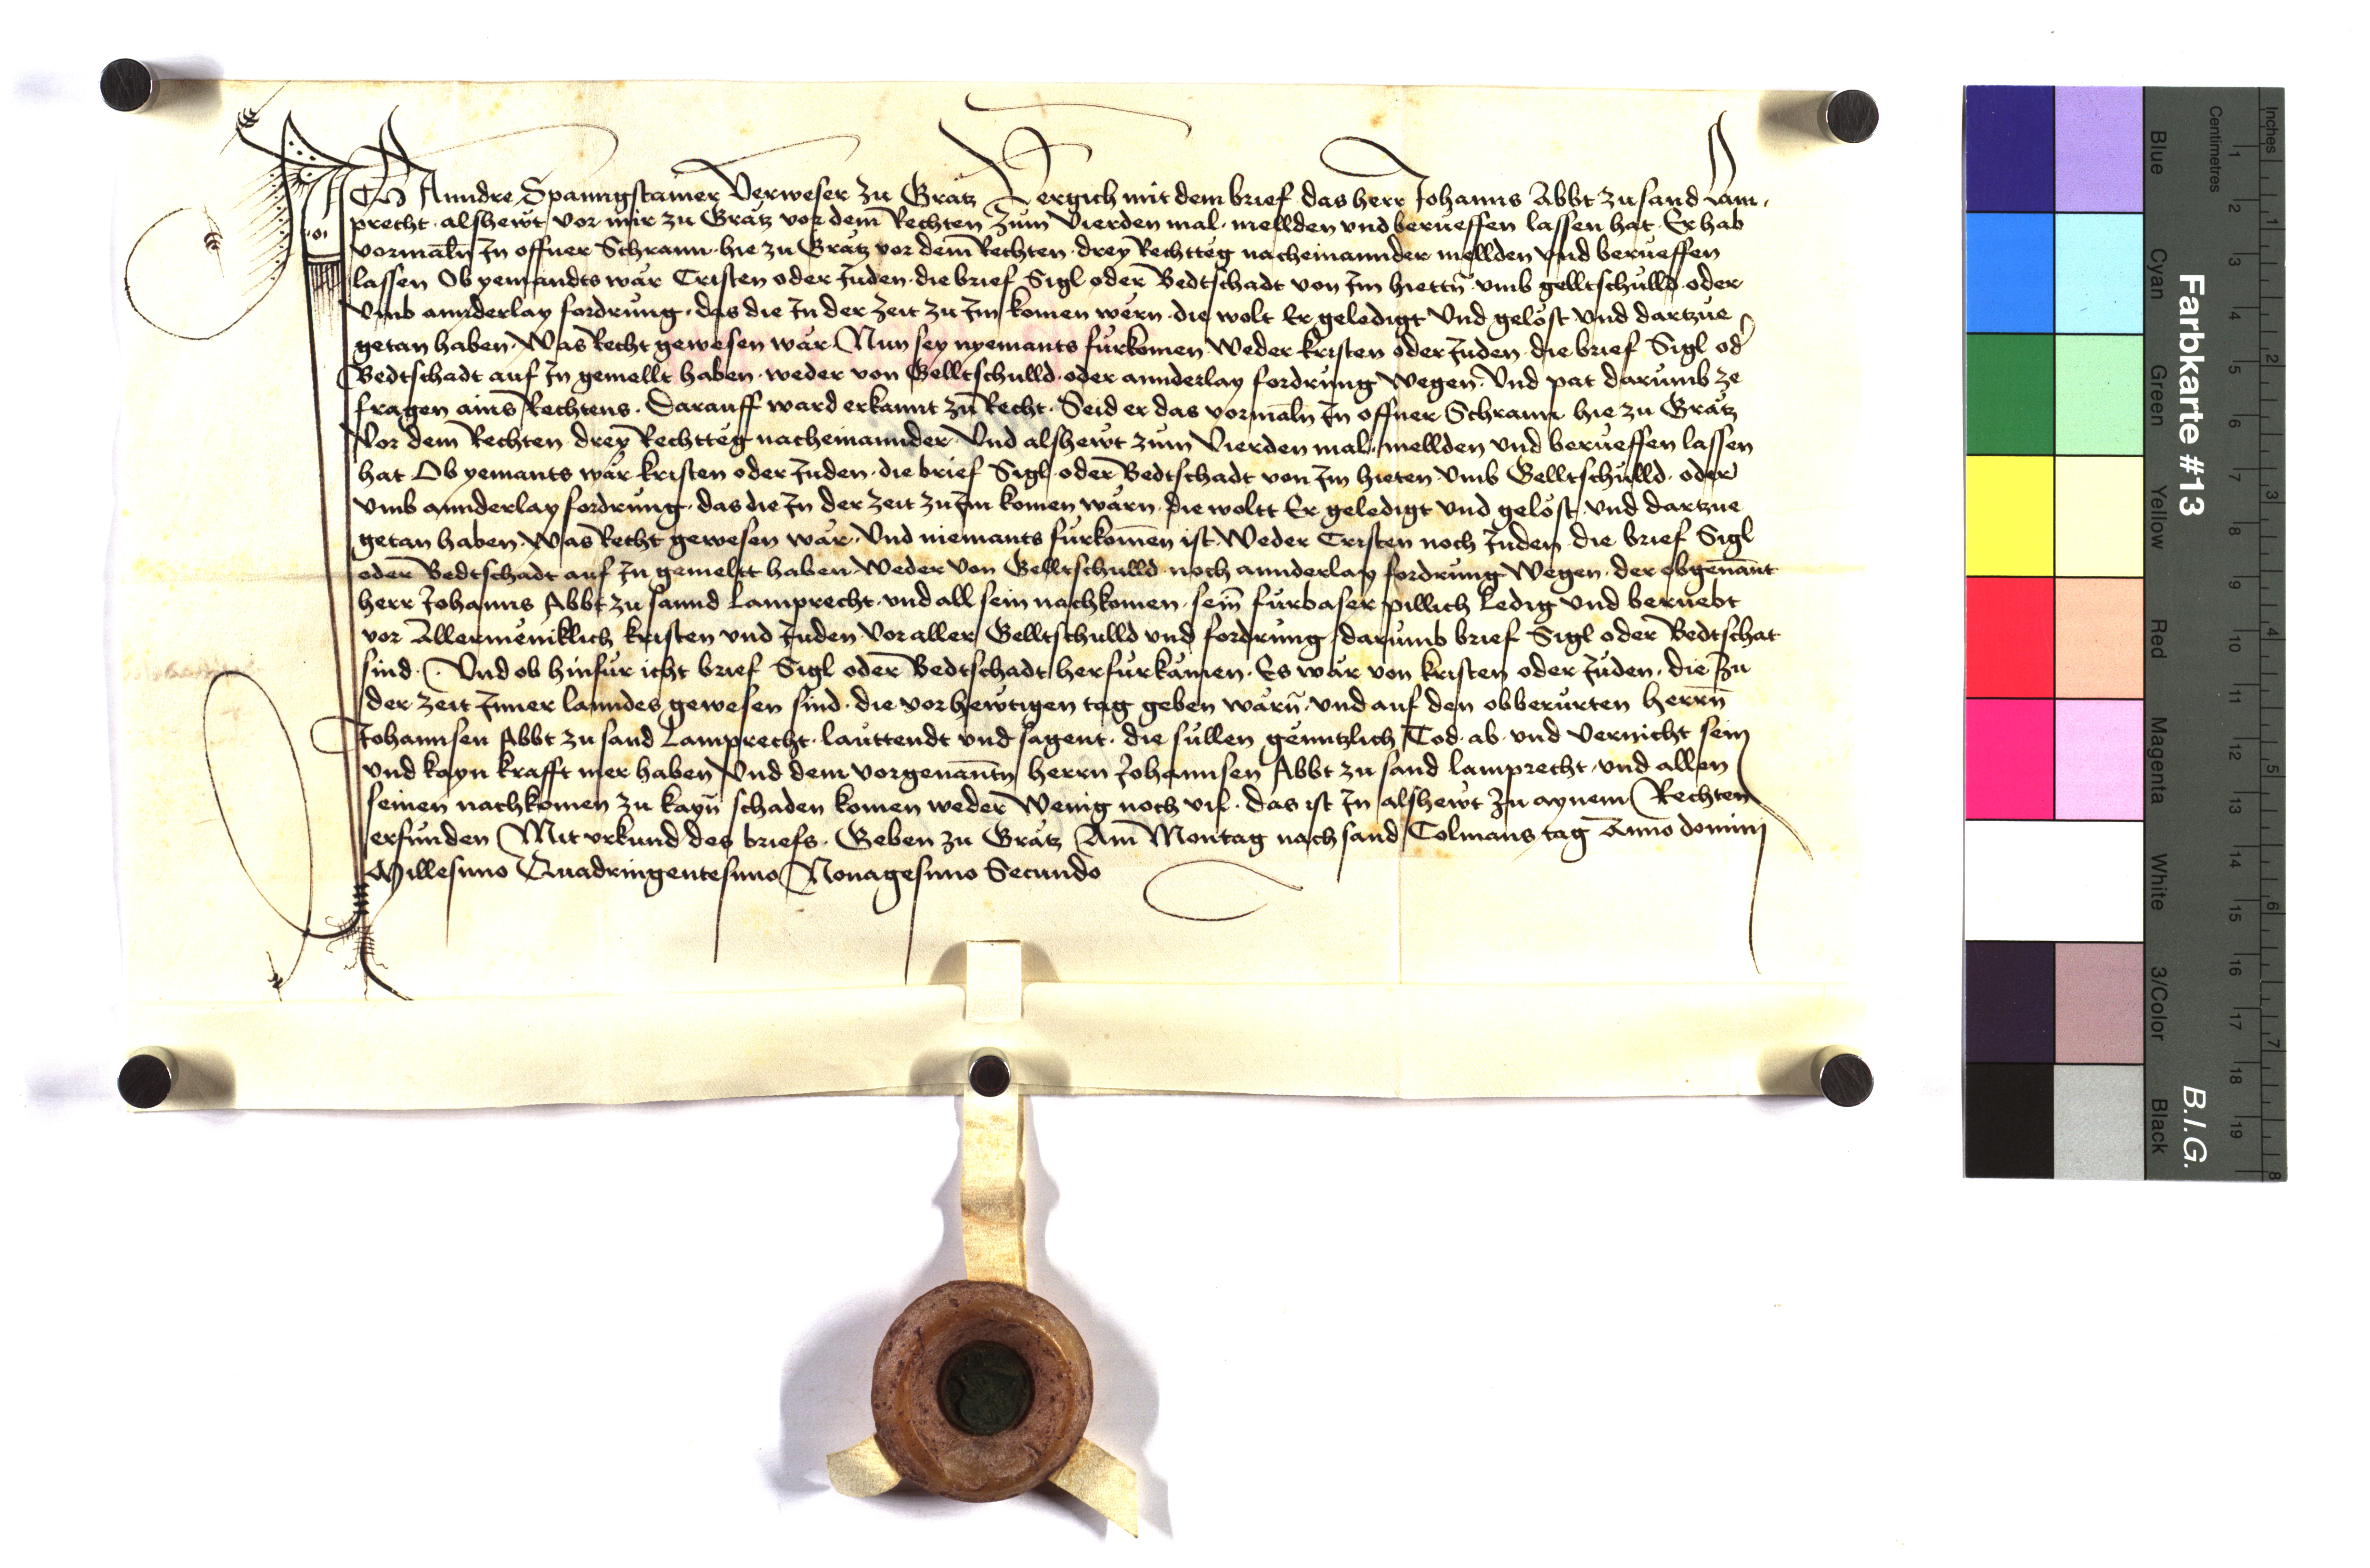 ICh Anndre Spanngstainer Verweser zu Grätz Vergich mit dem brief das herr Johanns Abbt zu sand Lam,
precht alshewt vor mir zu Grätz vor dem Rechten zum Vierden mal mellden vnd berueffen lassen hat Er hab
vormaln In offner Schrann hie zu Grätz vor dem Rechten drey Rechttëg nacheinannder mellden vnd berueffen
lassen Ob yemandts wär Cristen oder Juden die brief Sigl oder Bedtschadt von Im hiettn vmb gelltschulld oder
Vmb annderlay fordrung das die In der Zeit zu Im komen wërn die wolt Er geledigt Vnd gelöst vnd dartzue
getan haben Was Recht gewesen wär Nun sey nyemants fürkomen Weder kristen oder Juden die brief Sigl od
Bedtschadt auf In gemellt haben weder von Gelltschulld oder annderlay fordrung Wegen Vnd pat darumb ze
fragen ains Rechtens Darauff ward erkannt zu Recht Seid er das vormaln In offner Schrann hie zu Grätz
Vor dem Rechten drey Rechttëg nacheinannder Vnd alshewt zum Vierden mal mellden vnd berueffen lassen
hat Ob yemants wär kristen oder Juden die brief Sigl oder Bedtschadt von Im hieten Vmb Gelltschulld oder
vmb annderlay fordrung das die In der Zeit zu Im komen wärn die woltt Er geledigt vnd gelöst vnd dartzue
getan haben Was Recht gewesen wär Vnd niemants fürkomen ist Weder Cristen noch Juden die brief Sigl
oder Bedtschadt auf In gemeltt haben Weder Von Gelltschulld noch annderlay fordrung Wegen der obgenant
herr Johanns Abbt zu sannd Lamprecht vnd all sein nachkomen sein fürbaser pillich Ledig vnd beruebt
vor Allermëniklich kristen vnd Juden Vor aller Gelltschulld vnd fordrung darumb brief Sigl oder Bedtschat
sind Vnd ob hinfür icht brief Sigl oder Bedtschadt herfürkämen Es wär von kristen oder Juden die zu
der Zeit Inner lanndes gewesen sind die vor hewtigen tag geben wärn vnd auf den obberürten herrn
Johannsen Abbt zu sand Lamprecht lauttendt vnd sagent die süllen gënntzlich Tod ab vnd Vernicht sein
vnd kayn krafft mer haben Vnd dem vorgenantn herrn Johannsen Abbt zu sand lamprecht vnd allen
seinen nachkomen zu kayn schaden komen weder Wenig noch vil das ist In alshewt zu aynem Rechten
erfunden Mit vrkund des briefs Geben zu Grätz Am Montag nach sand Colmans tag Anno domini
Millesimo Quadringentesimo Nonagesimo Secundo
Farbkarte #13
B.I.G.
Blue Cyan Green Yellow Red Magenta White 3/Color Black
Centimetres 1 2 3 4 5 6 7 8 9 10 11 12 13 14 15 16 17 18 19
Inches 1 2 3 4 5 6 7 8